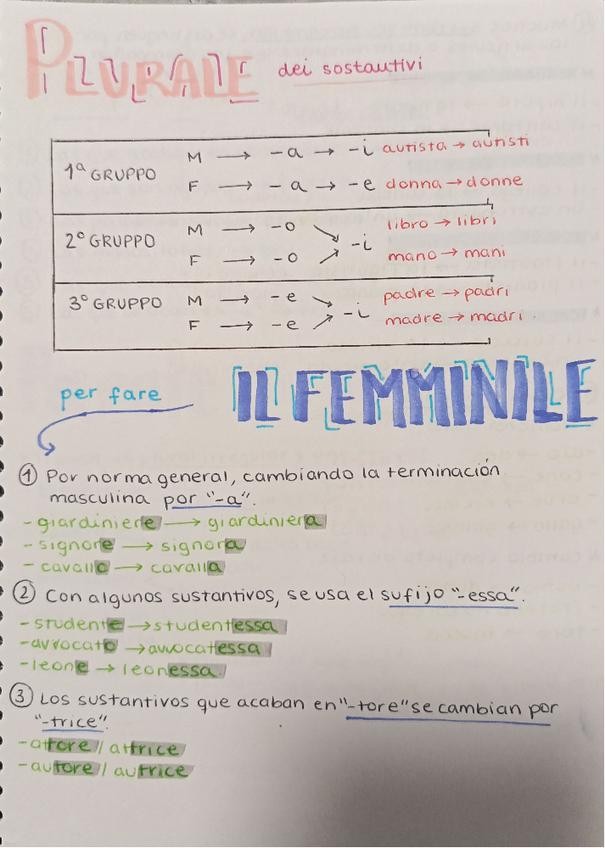 PLURALE dei sostautivi
1ª GRUPPO M → -a → -i autista → autisti
F → -a → -e donna → donne
2º GRUPPO M → -o ↘ libro → libri
F → -o ↗ -i mano → mani
3º GRUPPO M → -e ↘ padre → padri
F → -e ↗ -i madre → madri
per fare IL FEMMINILE
① Por norma general, cambiando la terminación
masculina por "-a".
- giardiniere → giardiniera
- signore → signora
- cavallo → cavalla
② Con algunos sustantivos, se usa el sufijo "-essa".
- studente → studentessa
- avvocato → avvocatessa
- leone → leonessa
③ Los sustantivos que acaban en "-tore" se cambian por
"-trice".
- attore / attrice
- autore / autrice